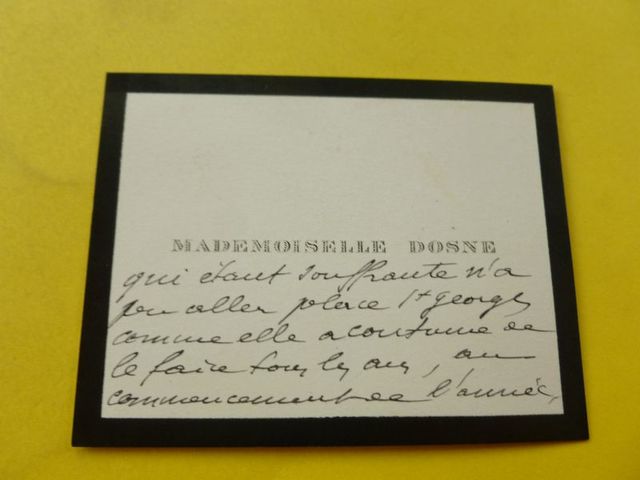 MADEMOISELLE DOSNE
qui étant souffrante n'a
pu aller place St Georges
comme elle a coutume de
le faire tous les ans, au
commencement de l'année,